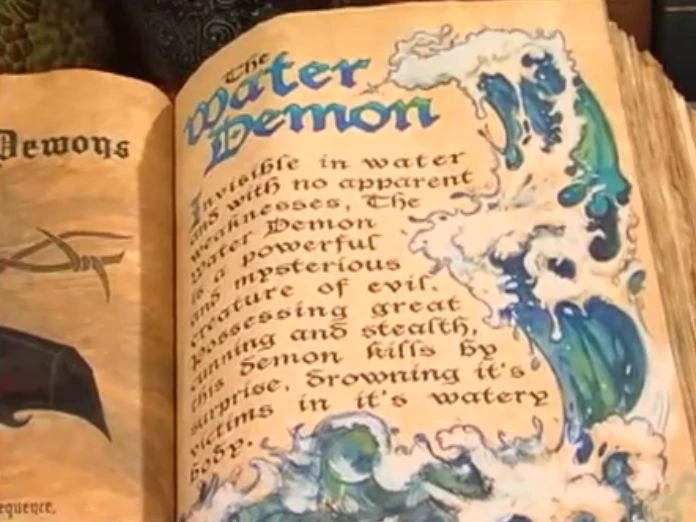 Demons
equence,
The
Water
Demon
Invisible in water
and with no apparent
weaknesses, The
Water Demon
is a powerful
and mysterious
creature of evil.
Possessing great
cunning and stealth,
this demon kills by
surprise, drowning it's
victims in it's watery
body.